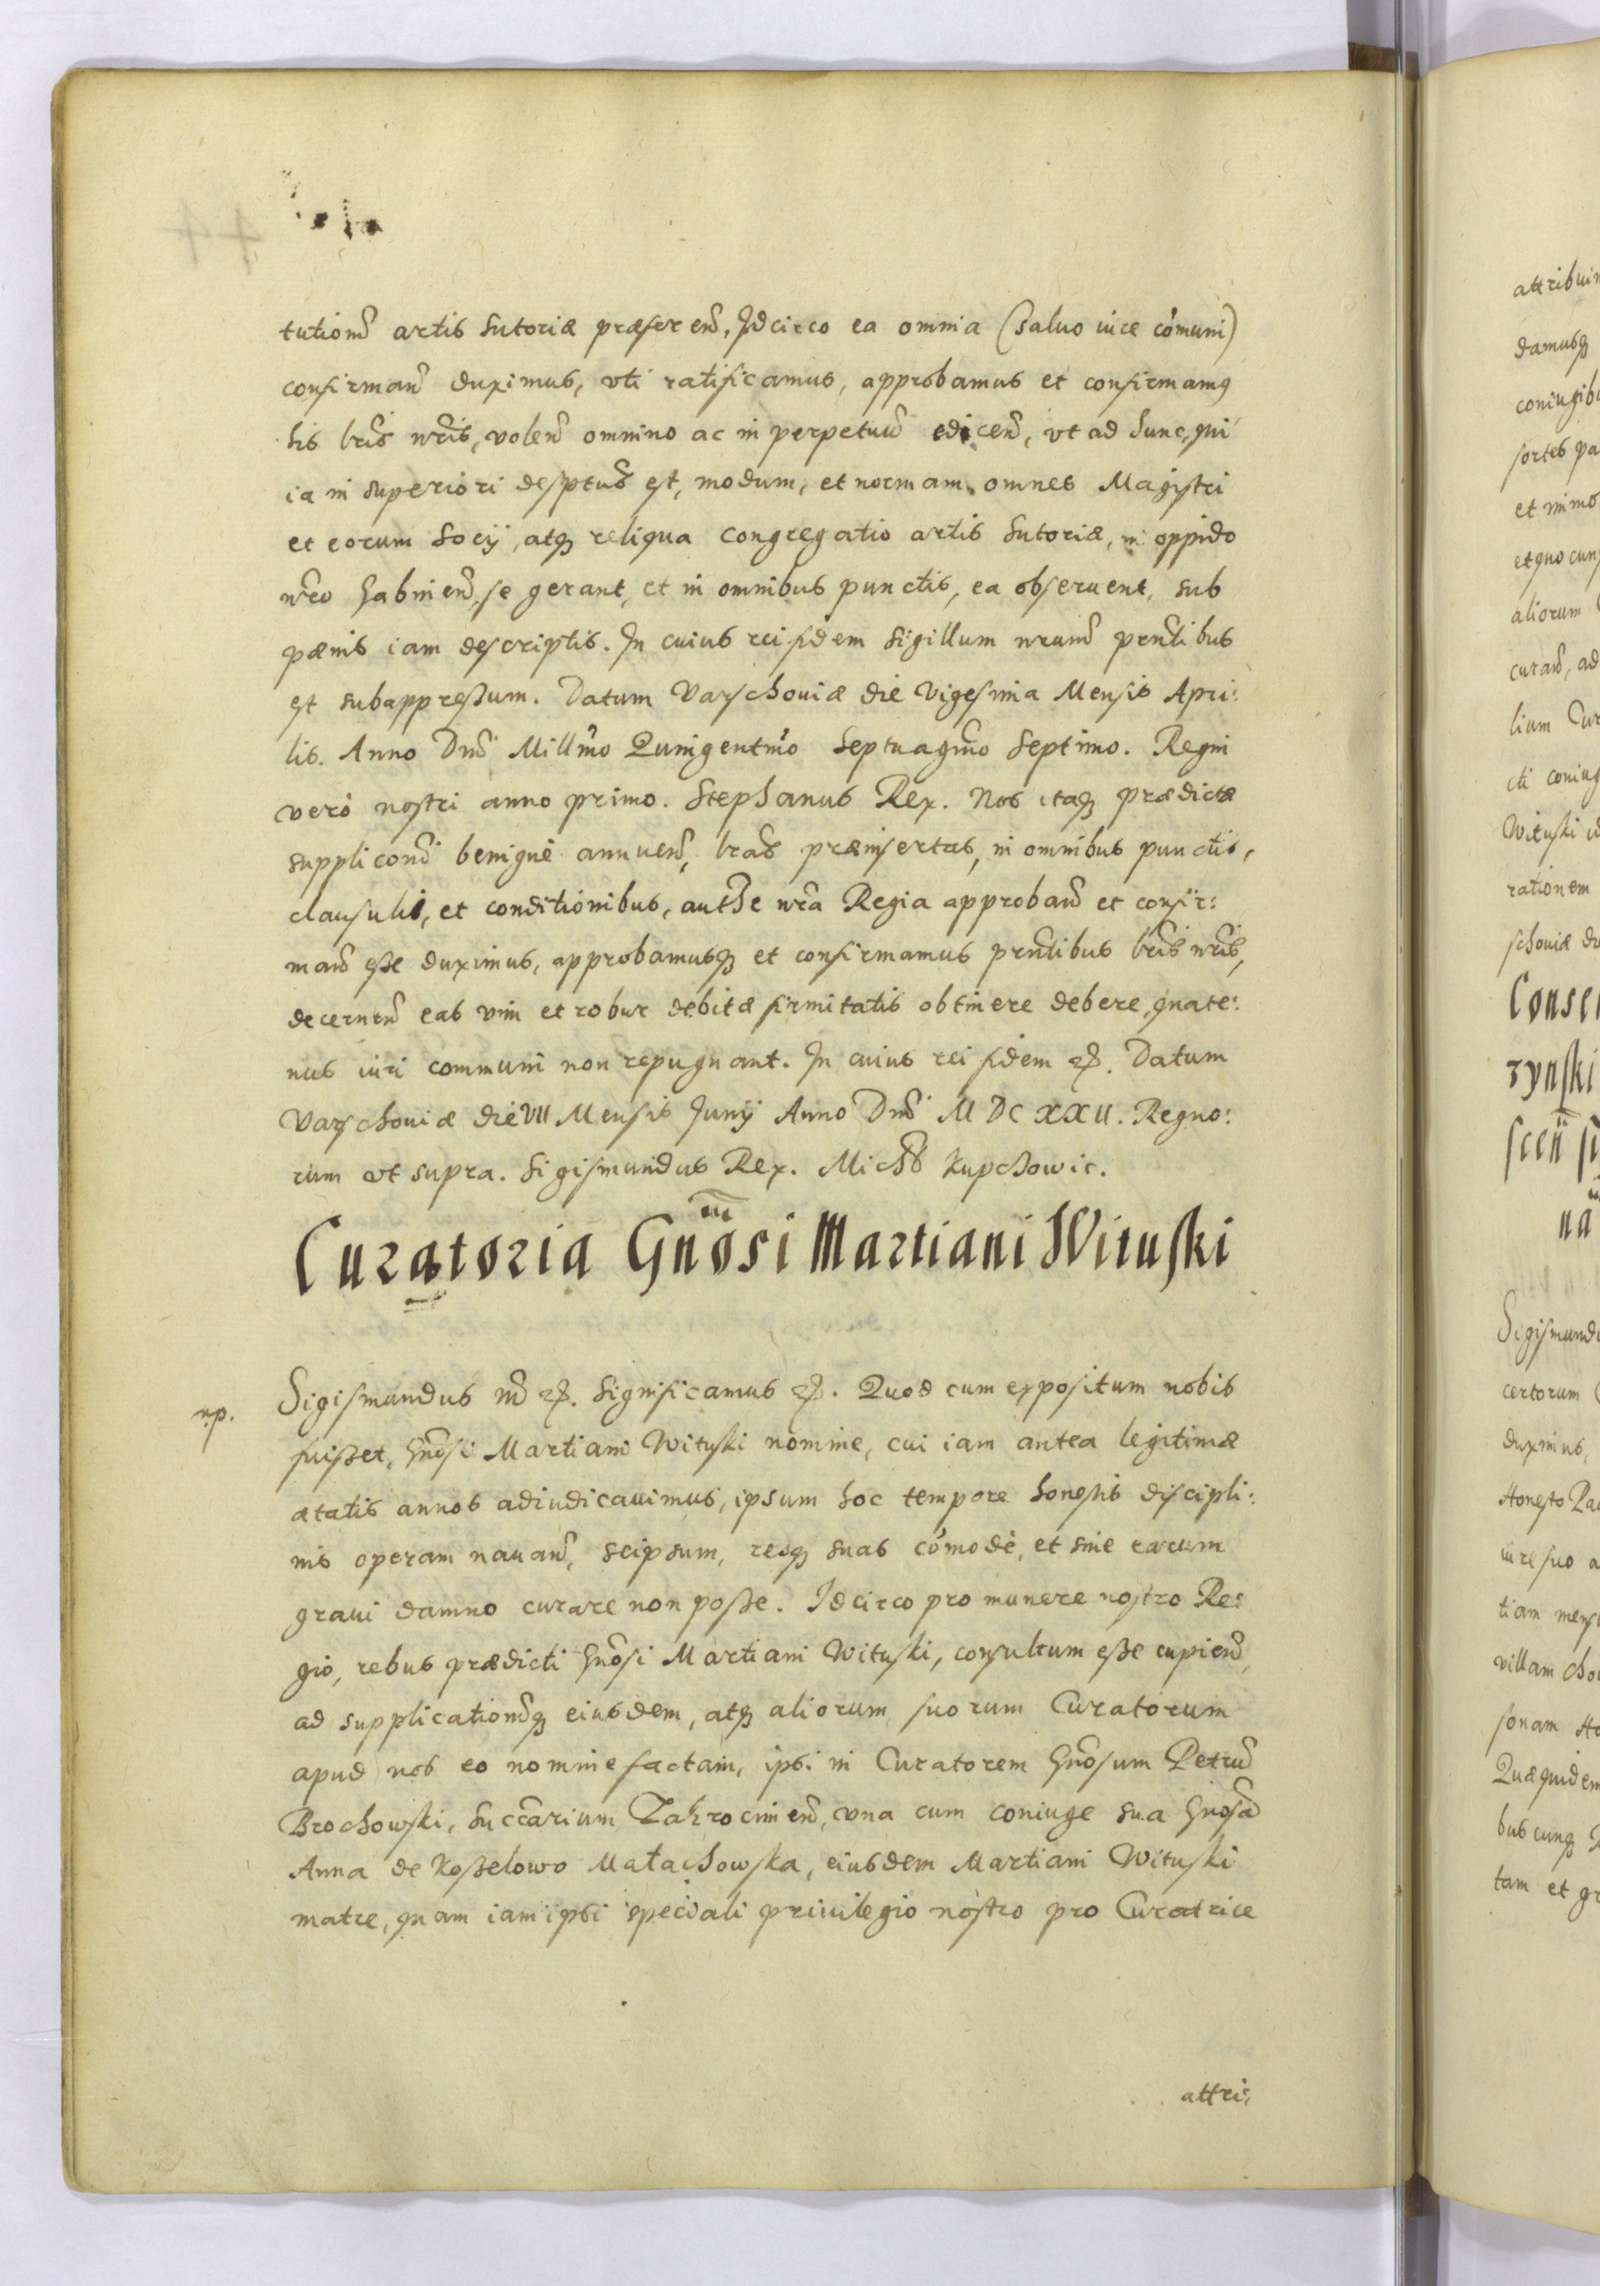 tutionẽ artis Sutoriæ præferen̄, Idcirco ea omnia (saluo iure com̄uni)
confirman̄ duximus, vti ratificamus, approbamus et confirmamꝰ
his lrīs nrīs, volen̄ omnino ac in perpetuū edicen̄, vt ad hunc, qui
iā in superiori descptus est, modum, et normam omnes Magistri
et eorum Socij, atqꝫ reliqua congregatio artis Sutoriæ, in oppido
nrō Gabinen̄, se gerant, et in omnibus punctis, ea obseruent, sub
pænis iam descriptis. In cuius rei fidem Sigillum nrum̄ prn̄tibus
est subappressum. Datum Varschouiæ die Vigesima Mensis Apri:
lis. Anno Dnī Millmo Quingentmo Septuagmo Septimo. Regni
verò nostri anno primo. Stephanus Rex. Nos itaqꝫ prædictæ
supplicōni benignè annuen̄, lrās præinsertas, in omnibus punctis,
clausulis, et conditionibus, authe nrā Regia approban̄ et confir:
man̄ esse duximus, approbamusqꝫ et confirmamus prn̄tibus lrīs nrīs,
decernen̄ eas vim et robur debitæ firmitatis obtinere debere, quate:
nus iuri communi non repugnant. In cuius rei fidem ꝛc. Datum
Varschouiæ die VII Mensis Junij Anno Dnī M DC XXII. Regno:
rum vt supra. Sigismundus Rex. Michs Kupchowic.
Curatoria Gnōsi Martiani Wituski
n.p.
Sigismundus IIIꝰ ꝛc. Significamus ꝛc. Quod cum expositum nobis
fuisset, Gnōsi Martiani Wituski nomine, cui iam antea legitimæ
ætatis annos adiudicauimus, ipsum hoc tempore honestis discipli:
nis operam nauan̄, seipsum, resqꝫ suas com̄odè, et sine earum
graui damno curare non posse. Idcirco pro munere nostro Re:
gio, rebus prædicti Gnōsi Martiani Wituski, consultum esse cupien̄,
ad supplicationẽqꝫ eiusdem, atqꝫ aliorum suorum Curatorum
apud nos eo nomine factam, ipsi in Curatorem Gnōsum Petrū
Brochowski, Succārium Zakrocimen̄, vna cum coniuge sua Gnōsa
Anna de Kosselowo Małachowska, eiusdem Martiani Wituski
matre, quam iam ipsi speciali priuilegio nostro pro Curatrice
attri: